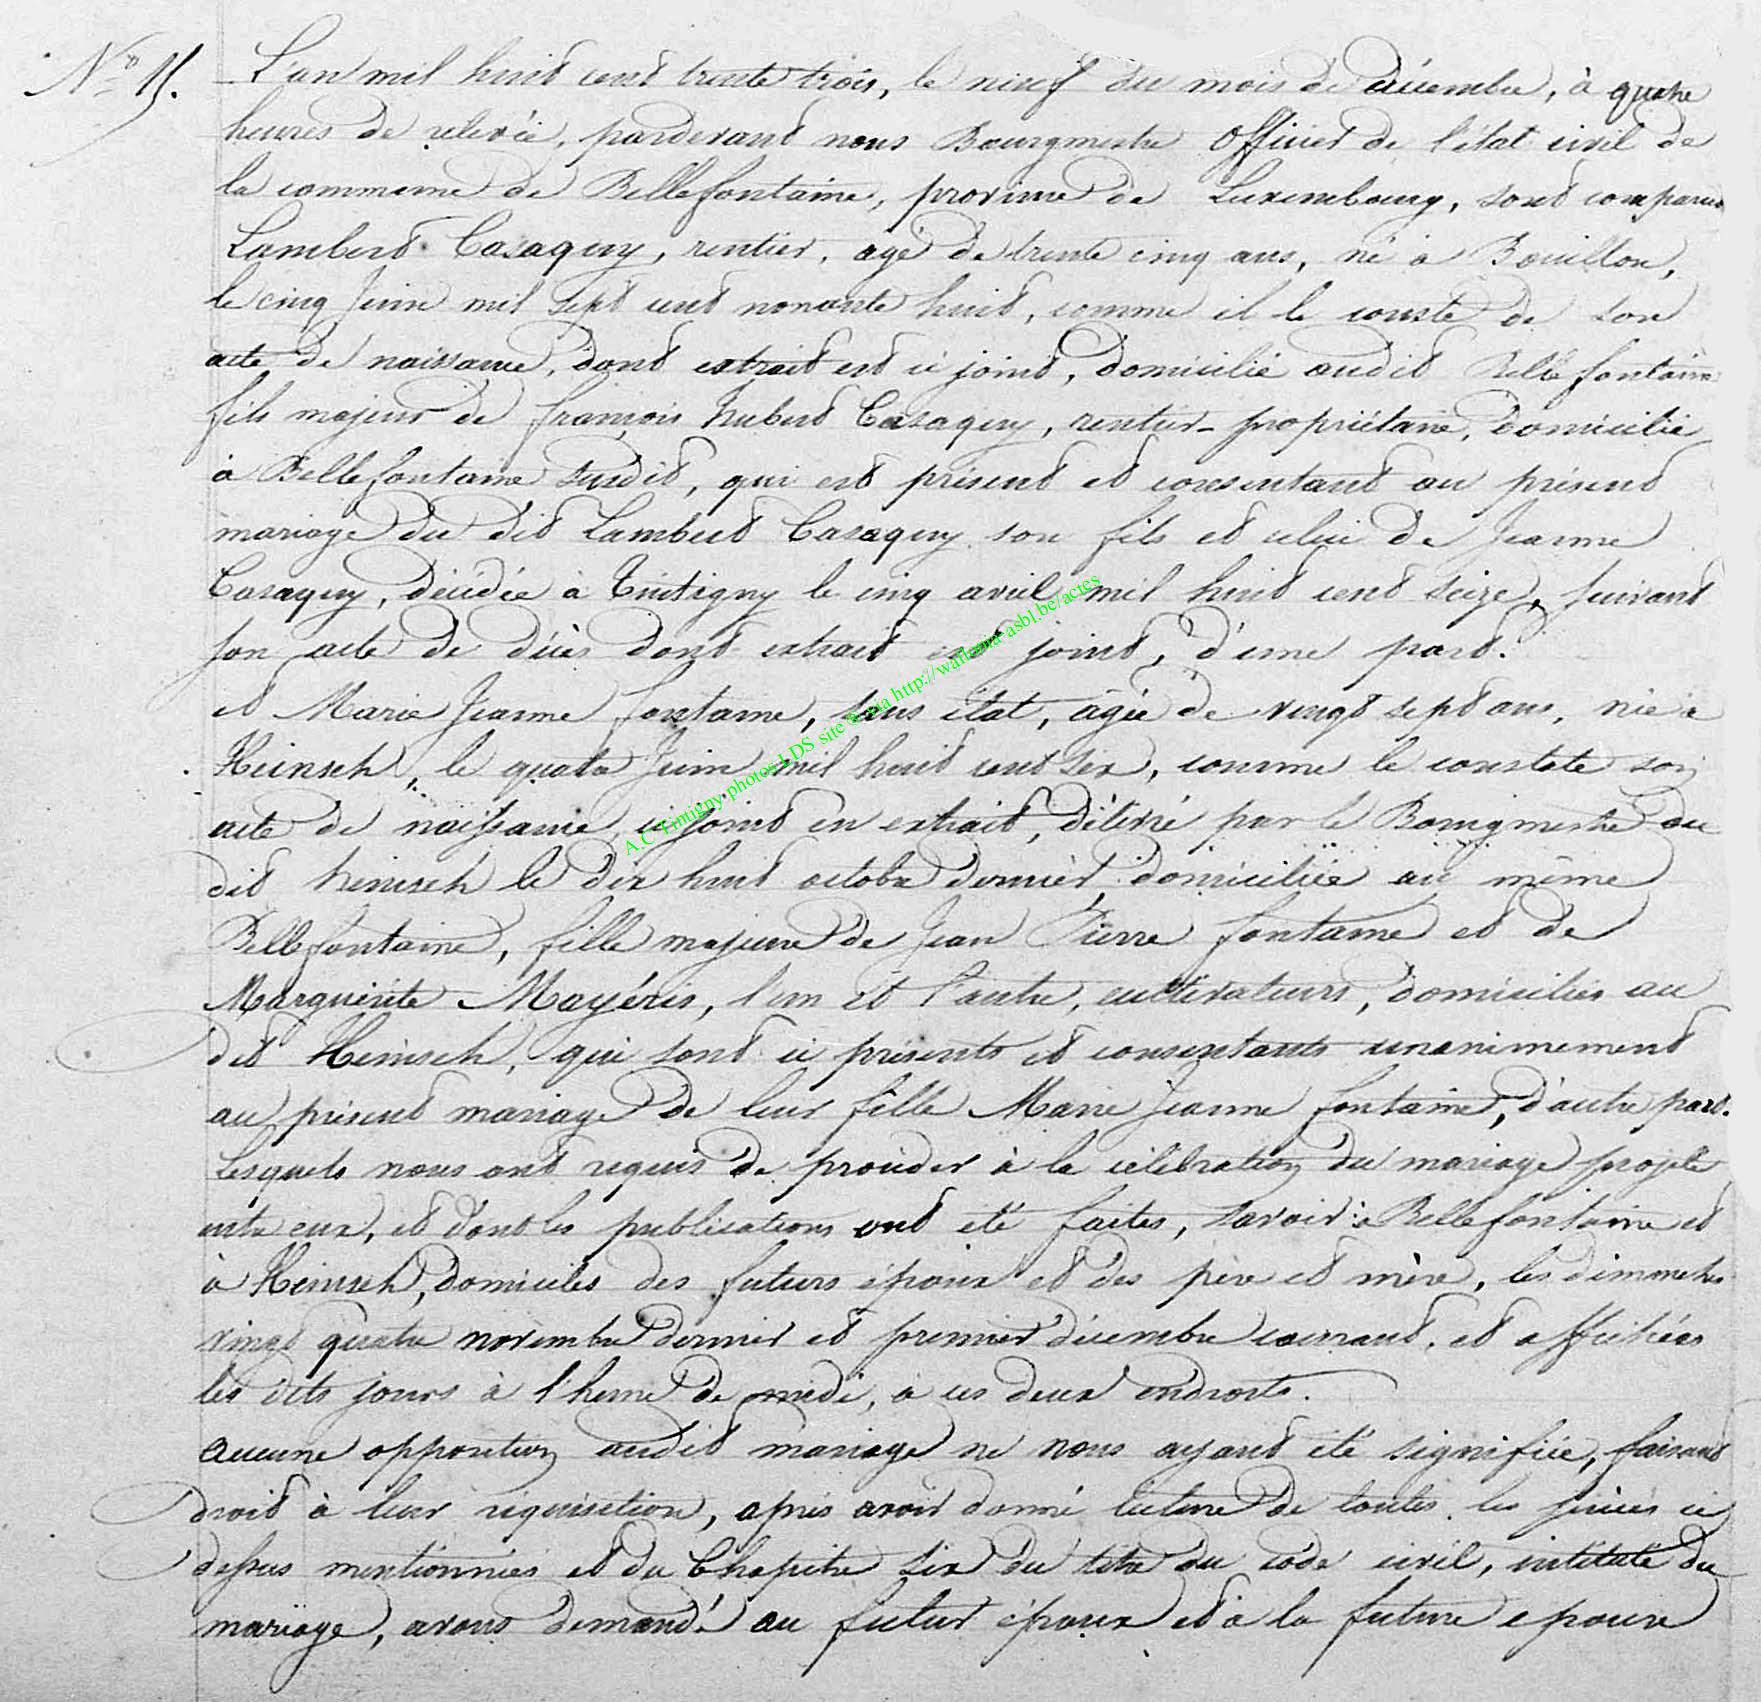 N° 15.
L'an mil huit cent trente trois, le neuf du mois de décembre, à quatre
heures de relevée, pardevant nous Bourgmestre Officier de l'état civil de
la commune de Bellefontaine, province de Luxembourg, sont comparus
Lambert Casaquy, rentier, agé de trente cinq ans, né à Bouillon,
le cinq Juin mil sept cent nonante huit, comme il le conste de son
acte de naissance, dont extrait est ci joint, domicilié audit Bellefontaine
fils majeur de françois hubert Casaquy, rentier-propriétaire, domicilié
à Bellefontaine susdit, qui est présent et consentant au présent
mariage du dit Lambert Casaquy son fils et celui de Jeanne
Casaquy, décédée à Tintigny le cinq avril mil huit cent seize, suivant
son acte de décès dont extrait est joint, d'une part.
et Marie Jeanne fontaine, sans état, agée de vingt sept ans, née à
Heinsch, le quatre Juin mil huit cent six, comme le constate son
acte de naissance, ci joint en extrait, délivré par le Bourgmestre du
dit heinsch le dix huit octobre dernier, domiciliée au même
Bellefontaine, fille majeure de Jean Pierre fontaine et de
Marguerite Mayéris, l'un et l'autre, cultivateurs, domiciliés au
dit Heinsch, qui sont ci présents et consentants unanimement
au présent mariage de leur fille Marie Jeanne fontaine, d'autre part.
Lesquels nous ont requis de procéder à la célébration du mariage projeté
entre eux, et dont les publications ont été faites, savoir: à Bellefontaine et
à Heinsch, domiciles des futurs époux et des père et mère, les dimanches
vingt quatre novembre dernier et premier décembre courant, et affichées
les dits jours à l'heure de midi, à ces deux endroits.
Aucune opposition audit mariage ne nous ayant été signifiée, faisant
droit à leur réquisition, après avoir donné lecture de toutes les pièces ci
dessus mentionnées et du Chapitre six du titre du code civil, intitulé du
mariage, avons demandé au futur époux et à la future epouse
A.C Tintigny photos LDS site via http://wallonia-asbl.be/actes